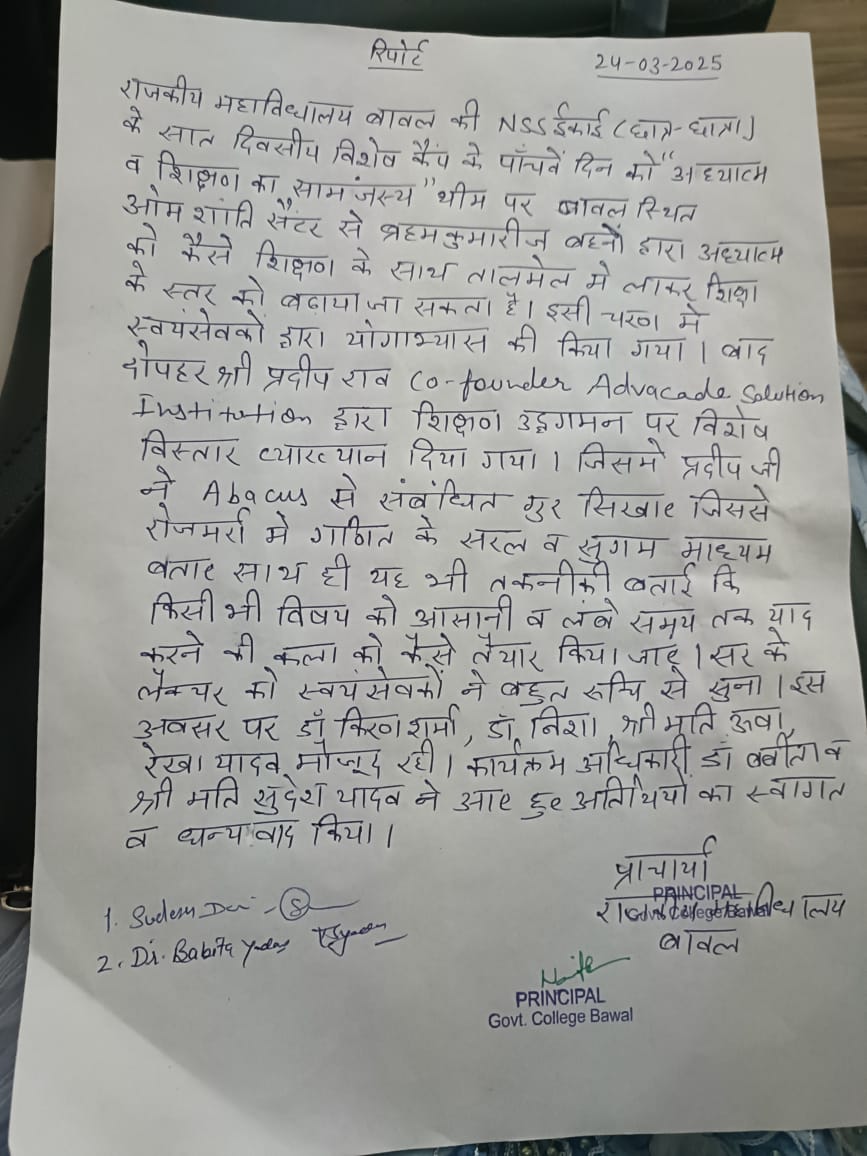 रिपोर्ट
24-03-2025
राजकीय महाविध्यालय बावल की NSS ईकाई (छात्र-छात्रा)
के सात दिवसीय विशेष कैंप के पाँचवें दिन को "अध्यात्म
व शिक्षण का सामंजस्य" थीम पर बावल स्थित
ओम शांति सैंटर से ब्रहमकुमारीज बहनों द्वारा अध्यात्म
को कैसे शिक्षण के साथ तालमेल मे लाकर शिक्षा
के स्तर को बढाया जा सकता है। इसी चरण मे
स्वयंसेवको द्वारा योगाभ्यास की किया गया। बाद
दोपहर श्री प्रदीप राव Co-founder Advacade Solution
Institution द्वारा शिक्षण उद्धगमन पर विशेष
विस्तार व्याख्यान दिया गया। जिसमे प्रदीप जी
ने Abacus से संबंधित गुर सिखाए जिससे
रोजमर्रा मे गणित के सरल व सुगम माध्यम
बताए साथ ही यह भी तकनीकी बताई कि
किसी भी विषय को आसानी व लंबे समय तक याद
करने की कला को कैसे तैयार किया जाए। सर के
लैक्चर को स्वयंसेवकों ने बहुत रूचि से सुना। इस
अवसर पर डॉ किरण शर्मा, डॉ. निशा, श्री मति ऊषा,
रेखा यादव मौजूद रही। कार्यक्रम अधिकारी डॉ बबीता व
श्री मति सुदेश यादव ने आए हुए अतिथियो का स्वागत
व धन्यवाद किया।
प्राचार्या
PRINCIPAL
Govt. College Bawal
बावल
1. Sudesh Devi
2. Dr. Babita Yadav
PRINCIPAL
Govt. College Bawal